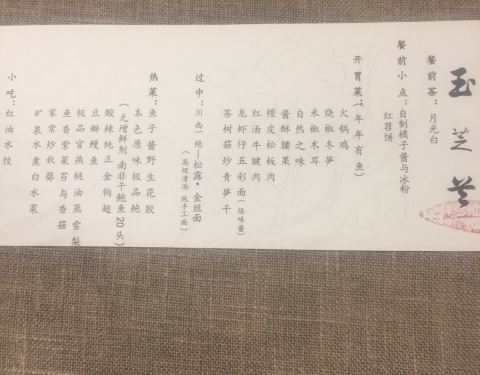 玉芝兰
餐前茶：月光白
餐前小点：自制橘子酱与冰粉
红苕饼
开胃菜：（年年有鱼）
火锅鸡
烧椒冬笋
米椒木耳
自然之味
酱酥腰果
橙皮松板肉
红汤牛腱肉
龙虾仔五彩面（怪味酱）
茶树菇炒青笋干
过中：川西一绝—松露·金丝面
（高级清汤 纯手工面）
热菜：鱼子酱野生花胶
本色原味极品鲍
（无增鲜剂 南非干鲍鱼20头）
酸辣纯正金钩翅
豆瓣鳗鱼
极品官燕桃油蒸雪梨
鱼香紫菜苔与香菇
家常炒秋葵
矿泉水煮白水菜
小吃：红油水饺